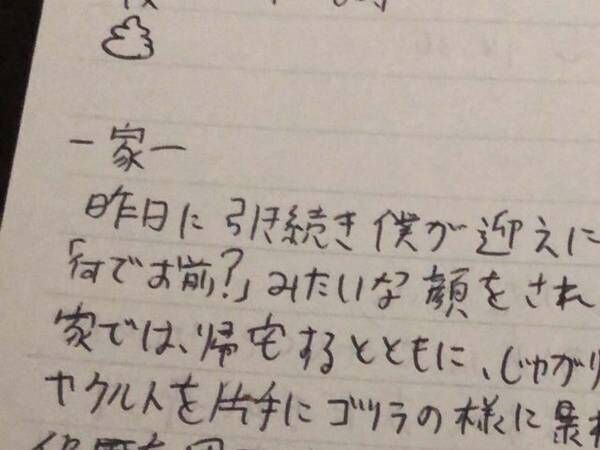 一家一
昨日に引き続き僕が迎えに
「何でお前?」みたいな顔をされ
家では、帰宅するとともに、じゃがり
ヤクルトを片手にゴジラの様に暴れ